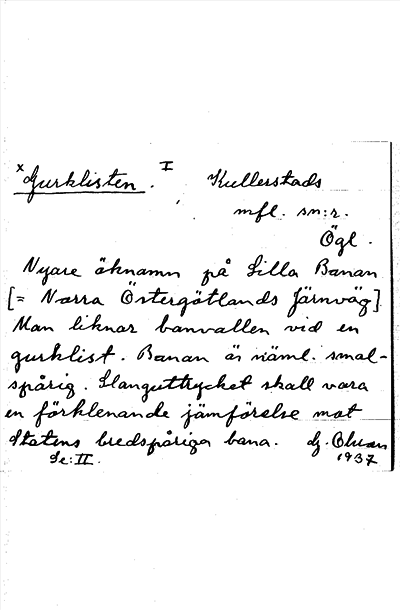 x Gurklisten. I Kullerstads
mfl. sn:r.
Ögl.
Nyare öknamn på Lilla Banan
[= Norra Östergötlands Järnväg]
Man liknar banvallen vid en
gurklist. Banan är näml. smal-
spårig. Slanguttrycket skall vara
en förklenande jämförelse mot
Statens bredspåriga bana.
Se: II. 1937